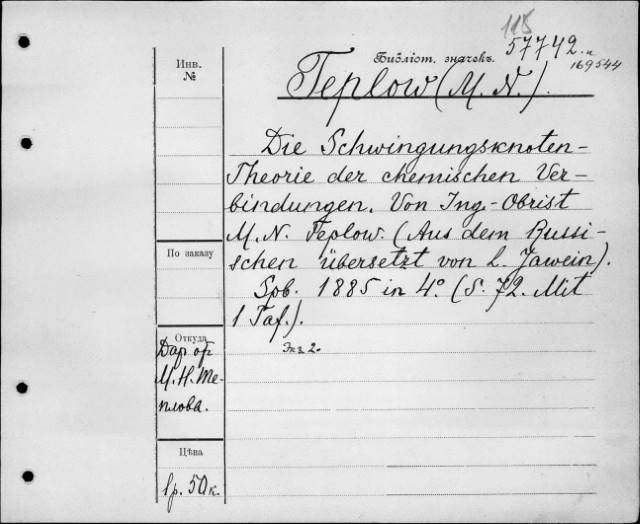 115
57742. и
169544
Библіот. значекъ.
Инв.
№
Teplow (M. N.).
Die Schwingungsknoten-
Theorie der chemischen Ver-
bindungen. Von Ing.-Obrist
M. N. Teplow. (Aus dem Russi-
schen übersetzt von L. Jawein).
Spb. 1885 in 4°. (S. 72. Mit
1 Taf.).
Экз 2.
По заказу
Откуда
Дар от
М. Н. Те-
плова.
Цѣна
1 р. 50 к.